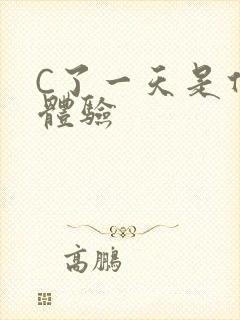 C了一天是
體驗
高鵬